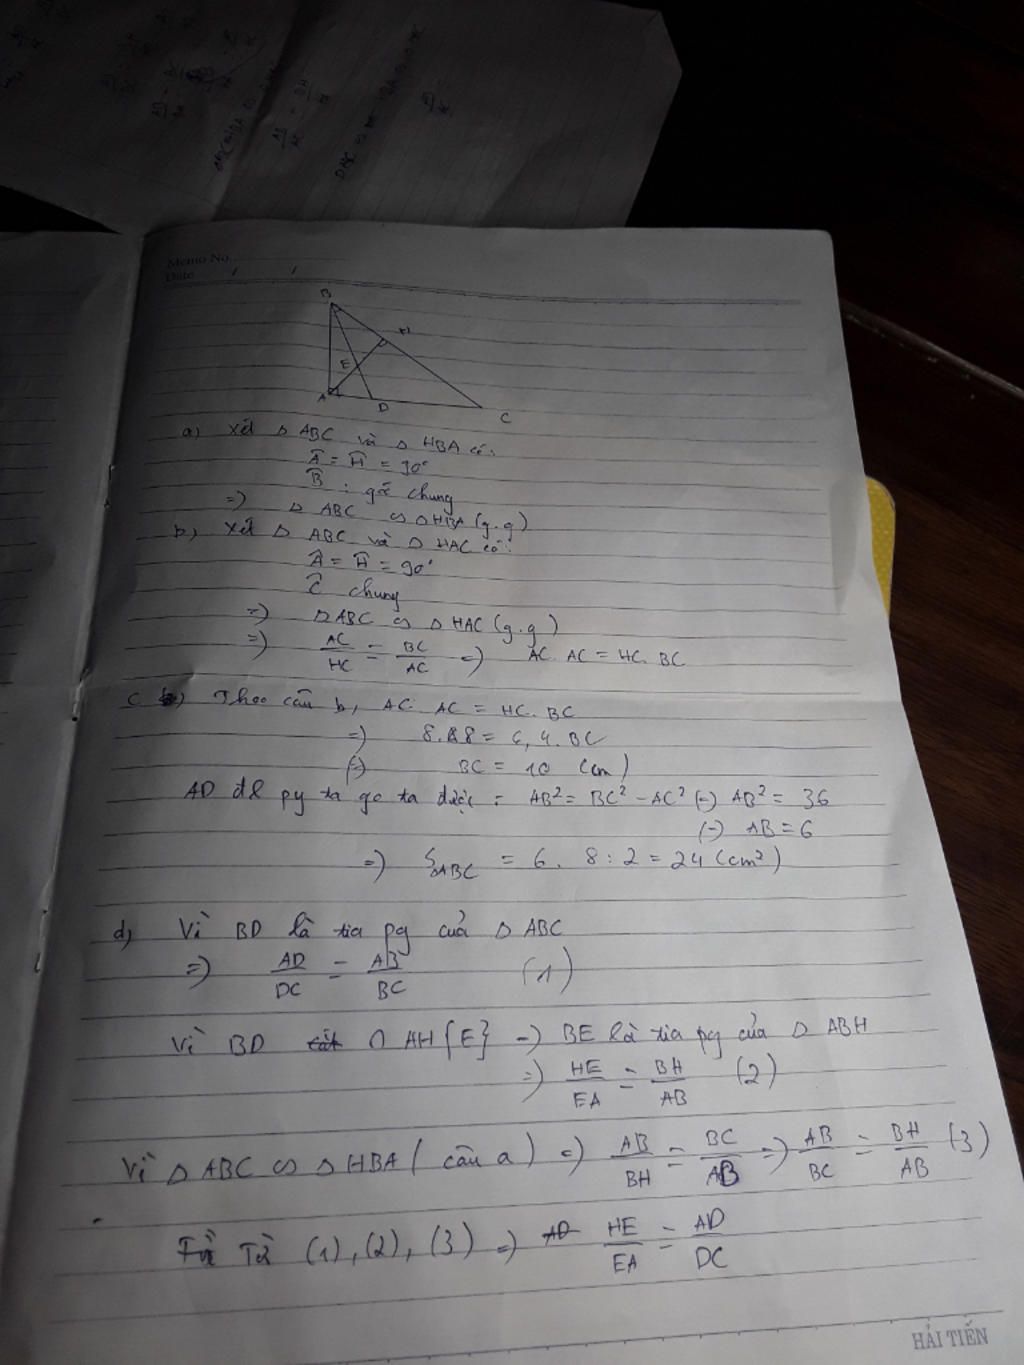 Memo No.
Date / /
B
H
E
A D C
a) Xét Δ ABC và Δ HBA có:
Â = Ĥ = 90°
B̂ : góc chung
=) Δ ABC ∽ Δ HBA (g.g)
b) Xét Δ ABC và Δ HAC có:
Â = Ĥ = 90°
Ĉ chung
=) Δ ABC ∽ Δ HAC (g.g)
=) AC/HC = BC/AC =) AC. AC = HC. BC
c) Theo câu b, AC. AC = HC. BC
=) 8.8 = 6,4. BC
(=) BC = 10 (cm)
AD đl py ta go ta được : AB² = BC² - AC² (=) AB² = 36
(=) AB = 6
=) SΔABC = 6. 8 : 2 = 24 (cm²)
d) Vì BD là tia pg của Δ ABC
=) AD/DC = AB/BC (1)
Vì BD cắt ∩ AH {E} =) BE là tia pg của Δ ABH
=) HE/EA = BH/AB (2)
Vì Δ ABC ∽ Δ HBA ( câu a ) =) AB/BH = BC/AB =) AB/BC = BH/AB (3)
Từ (1), (2), (3) =) AD HE/EA = AD/DC
HẢI TIẾN